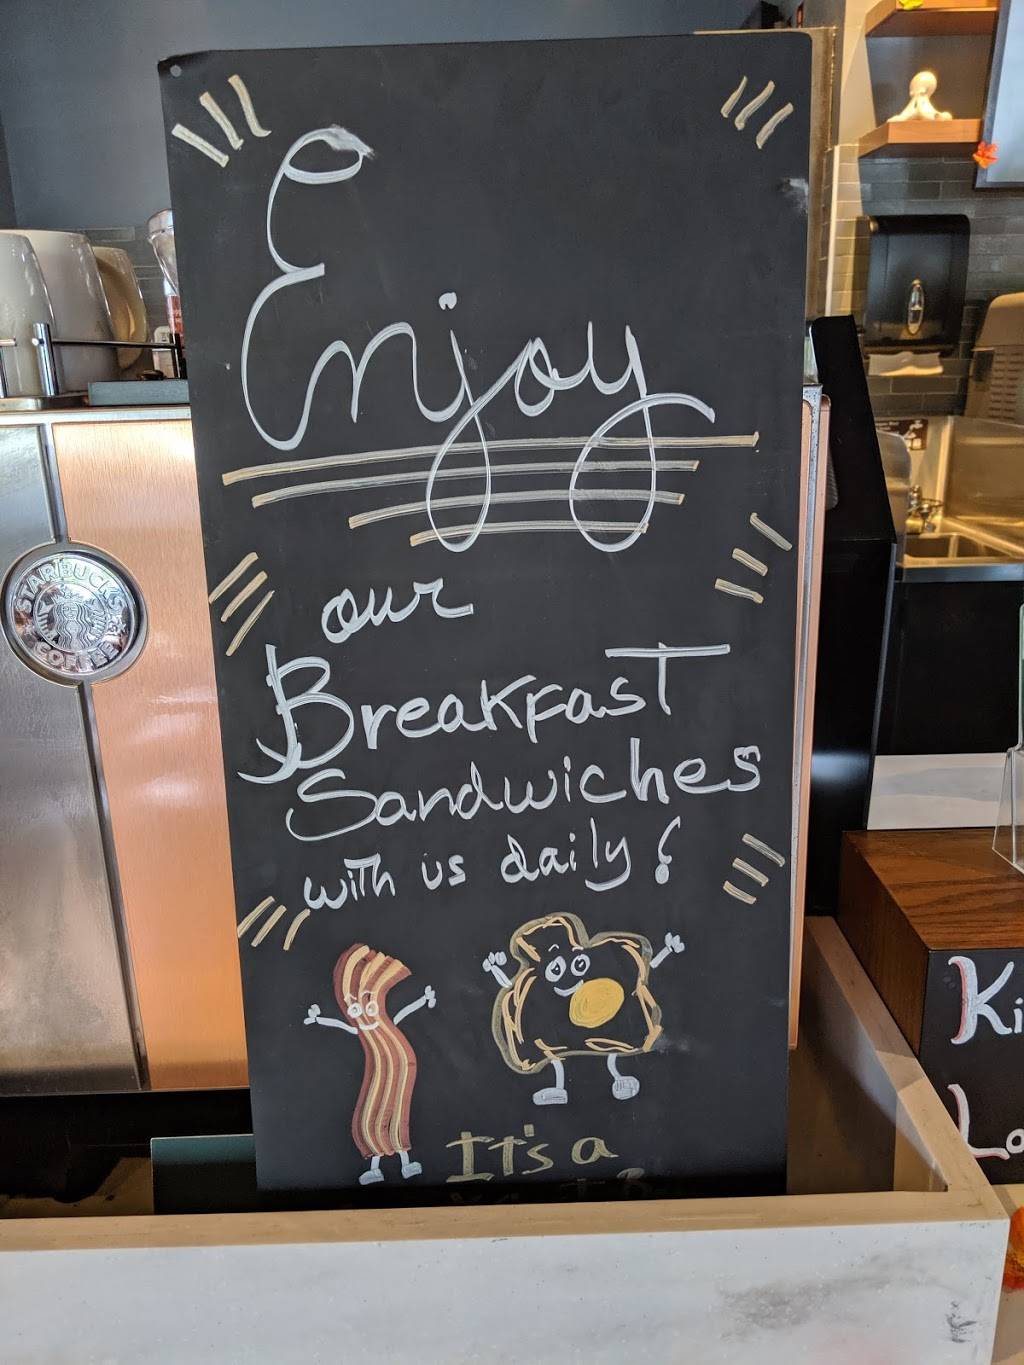 Enjoy
our
Breakfast
Sandwiches
with us daily!
It's a
STARBUCKS
COFFEE
Ki
Lo